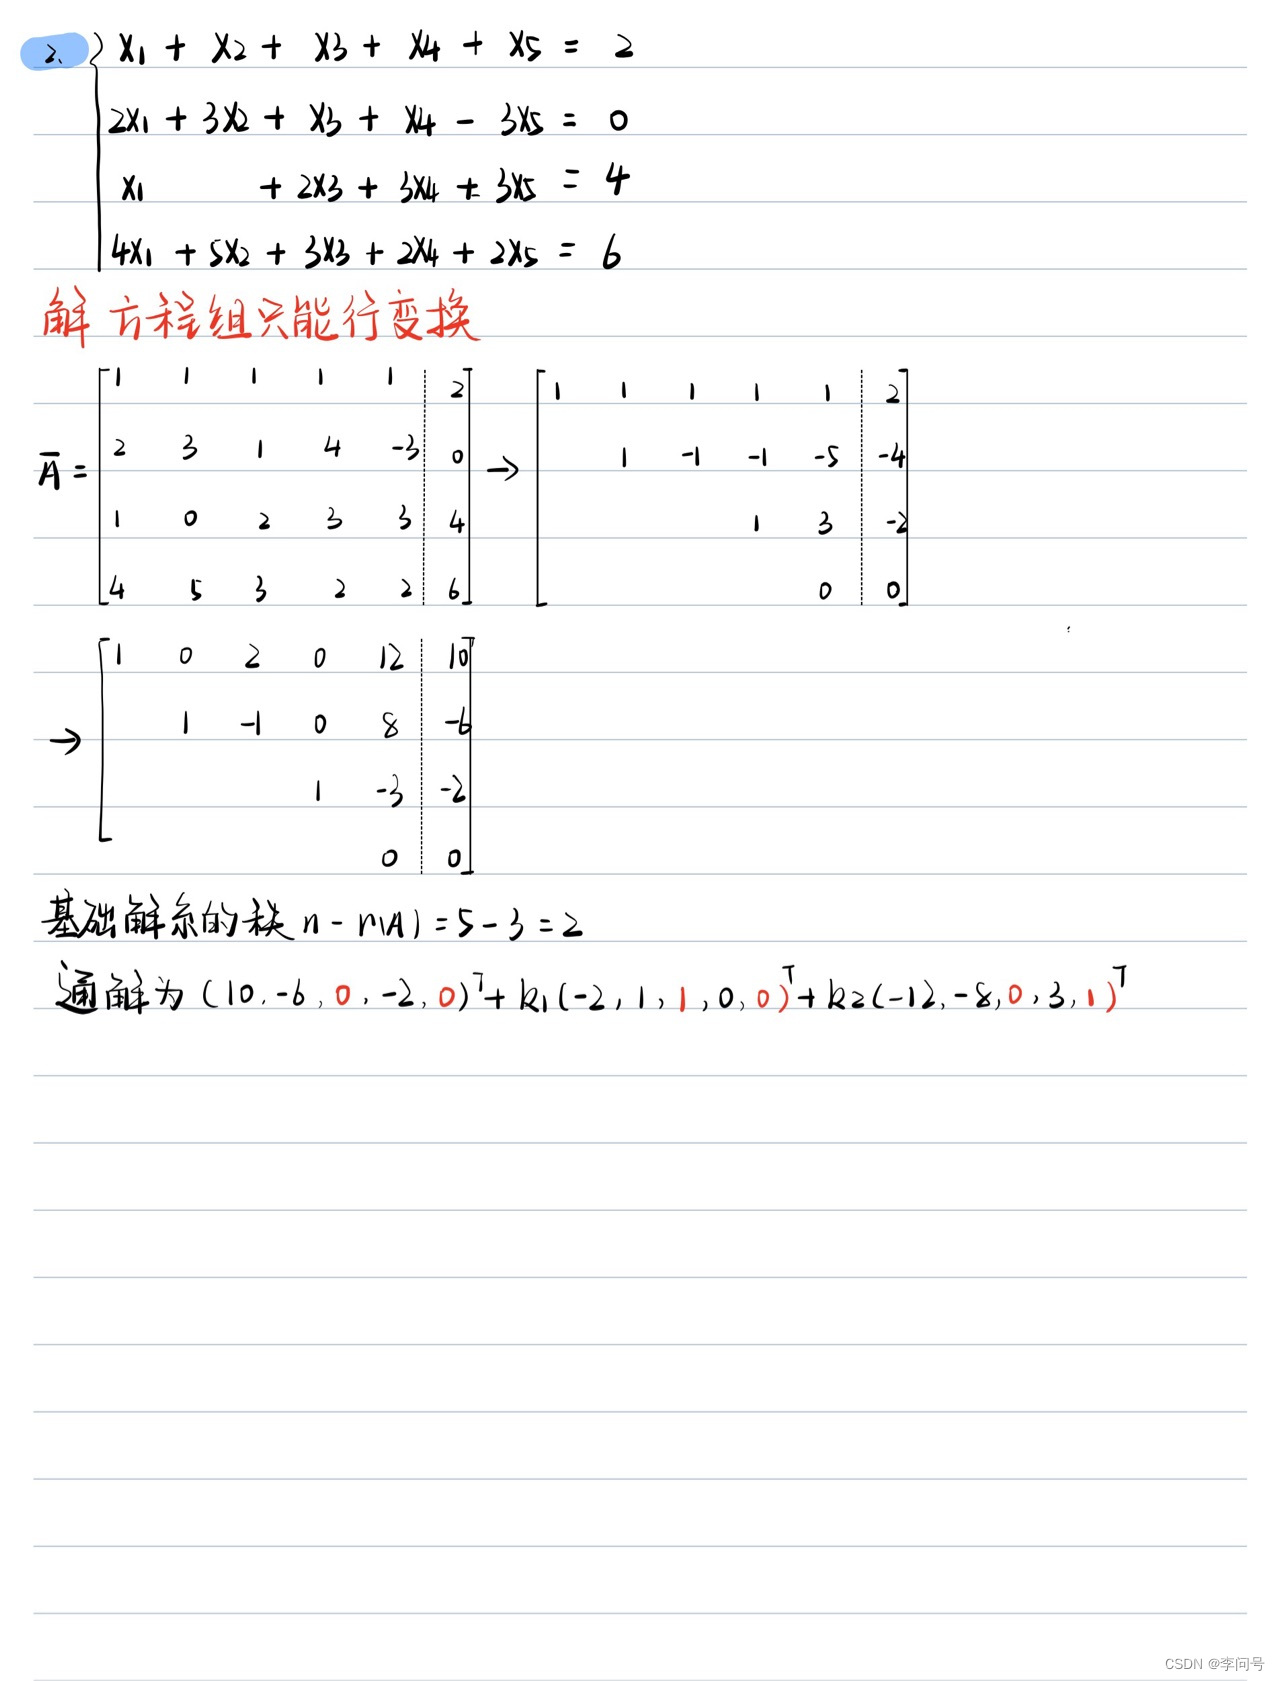 2、 x1 + x2 + x3 + x4 + x5 = 2
2x1 + 3x2 + x3 + x4 - 3x5 = 0
x1 + 2x3 + 3x4 + 3x5 = 4
4x1 + 5x2 + 3x3 + 2x4 + 2x5 = 6
解方程组只能行变换
1 1 1 1 1 2 1 1 1 1 1 2
2 3 1 4 -3 0 1 -1 -1 -5 -4
A̅ = →
1 0 2 3 3 4 1 3 -2
4 5 3 2 2 6 0 0
1 0 2 0 12 10
1 -1 0 8 -6
→
1 -3 -2
0 0
基础解系的秩 n - r(A) = 5 - 3 = 2
通解为 (10, -6, 0, -2, 0)ᵀ + k1(-2, 1, 1, 0, 0)ᵀ + k2(-12, -8, 0, 3, 1)ᵀ
CSDN @李问号